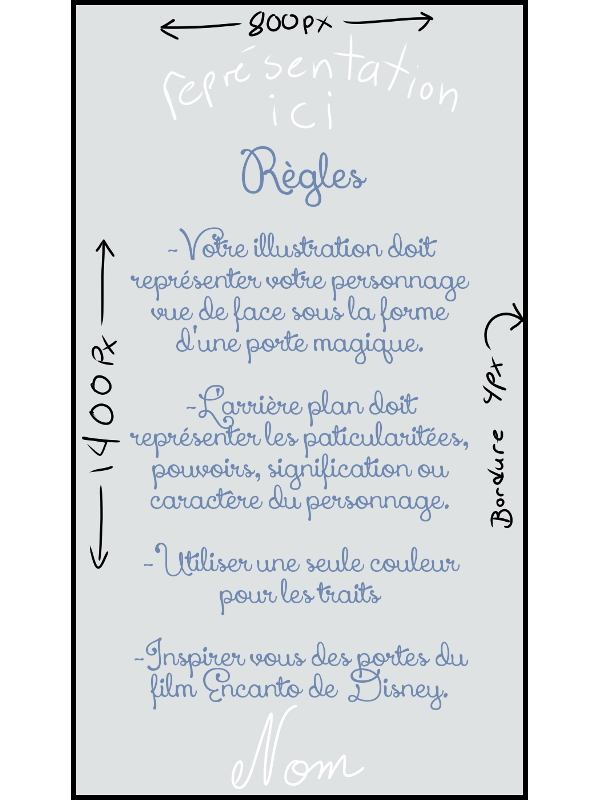 800px
représentation
ici
Règles
-Votre illustration doit
représenter votre personnage
vue de face sous la forme
d'une porte magique.
-L'arrière plan doit
représenter les paticularitées,
pouvoirs, signification ou
caractère du personnage.
-Utiliser une seule couleur
pour les traits
-Inspirer vous des portes du
film Encanto de Disney.
Nom
1400px
Bordure 4px